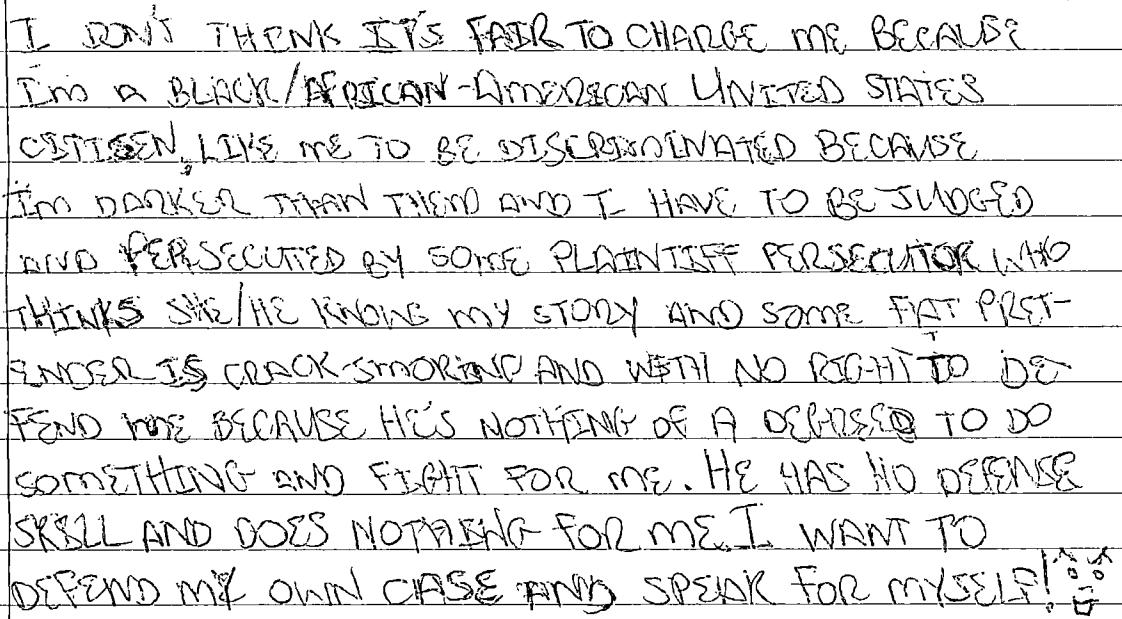 I DON'T THINK IT'S FAIR TO CHARGE ME BECAUSE
I'm a BLACK/AFRICAN-AMERICAN UNITED STATES
CITISEN, LIKE ME TO BE DISCRIMINATED BECAUSE
I'm DARKER THAN THEM AND I HAVE TO BE JUDGED
AND PERSECUTED BY SOME PLAINTIFF PERSECUTOR WHO
THINKS SHE/HE KNOWS MY STORY AND SOME PRET-
ENDER IS CRACK-SMOKING AND WITH NO RIGHT TO DE-
FEND ME BECAUSE HE'S NOTHING OF A TO DO
SOMETHING AND FIGHT FOR ME. HE HAS NO DEFENSE
SKILL AND DOES NOTHING FOR ME. I WANT TO
DEFEND MY OWN CASE AND SPEAK FOR MYSELF!